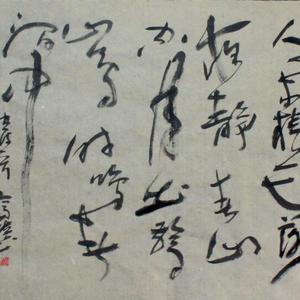 人閒桂花落
夜靜春山
空月出驚
山鳥時鳴春
澗中